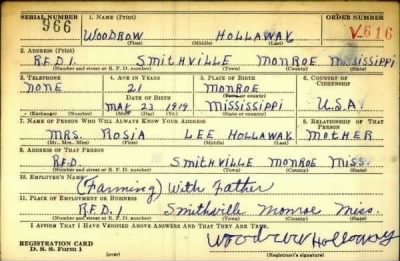 SERIAL NUMBER 1. NAME (Print) ORDER NUMBER
966 WOODROW HOLLAWAY V616
(First) (Middle) (Last)
2. ADDRESS (Print)
R.F.D.1. SMITHVILLE MONROE MISSISSIPPI
(Number and street or R. F. D. number) (Town) (County) (State)
3. TELEPHONE 4. AGE IN YEARS 5. PLACE OF BIRTH 6. COUNTRY OF CITIZENSHIP
NONE 21 MONROE
DATE OF BIRTH (Town or county)
MAY 23 1919 MISSISSIPPI U.S.A.
(Exchange) (Number) (Mo.) (Day) (Yr.) (State or country)
7. NAME OF PERSON WHO WILL ALWAYS KNOW YOUR ADDRESS 8. RELATIONSHIP OF THAT PERSON
MRS. ROSIA LEE HOLLAWAY MOTHER
(Mr., Mrs., Miss) (First) (Middle) (Last)
9. ADDRESS OF THAT PERSON
R.F.D. SMITHVILLE MONROE MISS.
(Number and street or R. F. D. number) (Town) (County) (State)
10. EMPLOYER'S NAME
(Farming) With Father
11. PLACE OF EMPLOYMENT OR BUSINESS
R.F.D. 1 Smithville Monroe Miss.
(Number and street or R. F. D. number) (Town) (County) (State)
I AFFIRM THAT I HAVE VERIFIED ABOVE ANSWERS AND THAT THEY ARE TRUE.
REGISTRATION CARD Woodrow Holloway
D. S. S. Form 1 (over) (Registrant's signature)